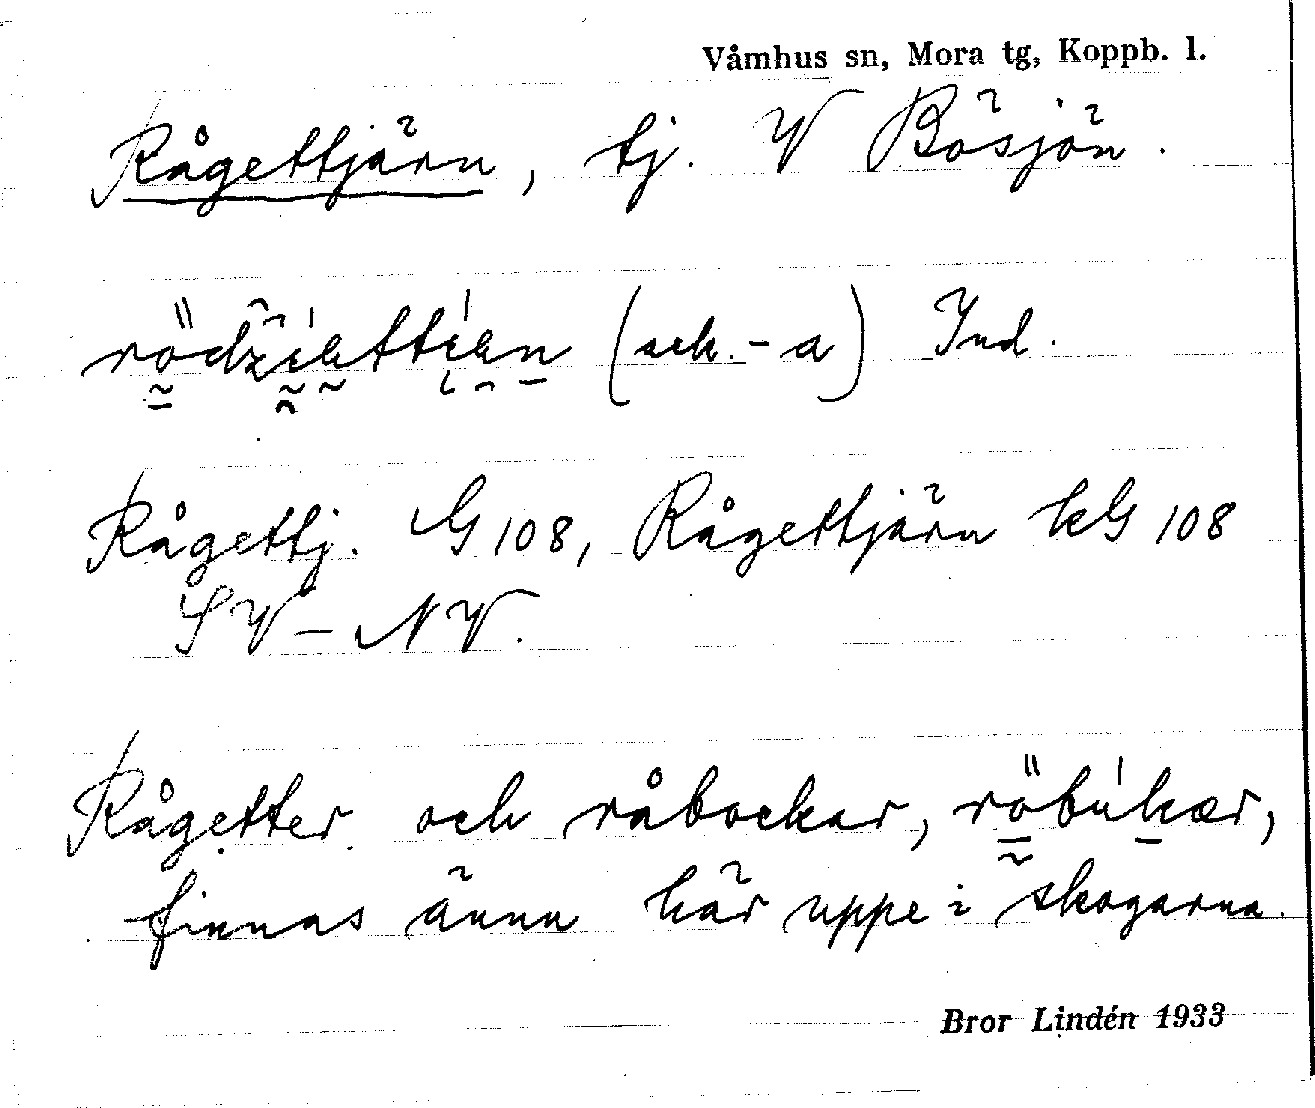 Våmhus sn, Mora tg, Koppb. l.
Rågettjärn, tj. V Bösjön.
(och -a) Ind.
Rågettj. G 108, Rågettjärn kG 108
SV – NV.
Rågetter och råbockar, röbukær,
finnas ännu här uppe i skogarna.
Bror Lindén 1933